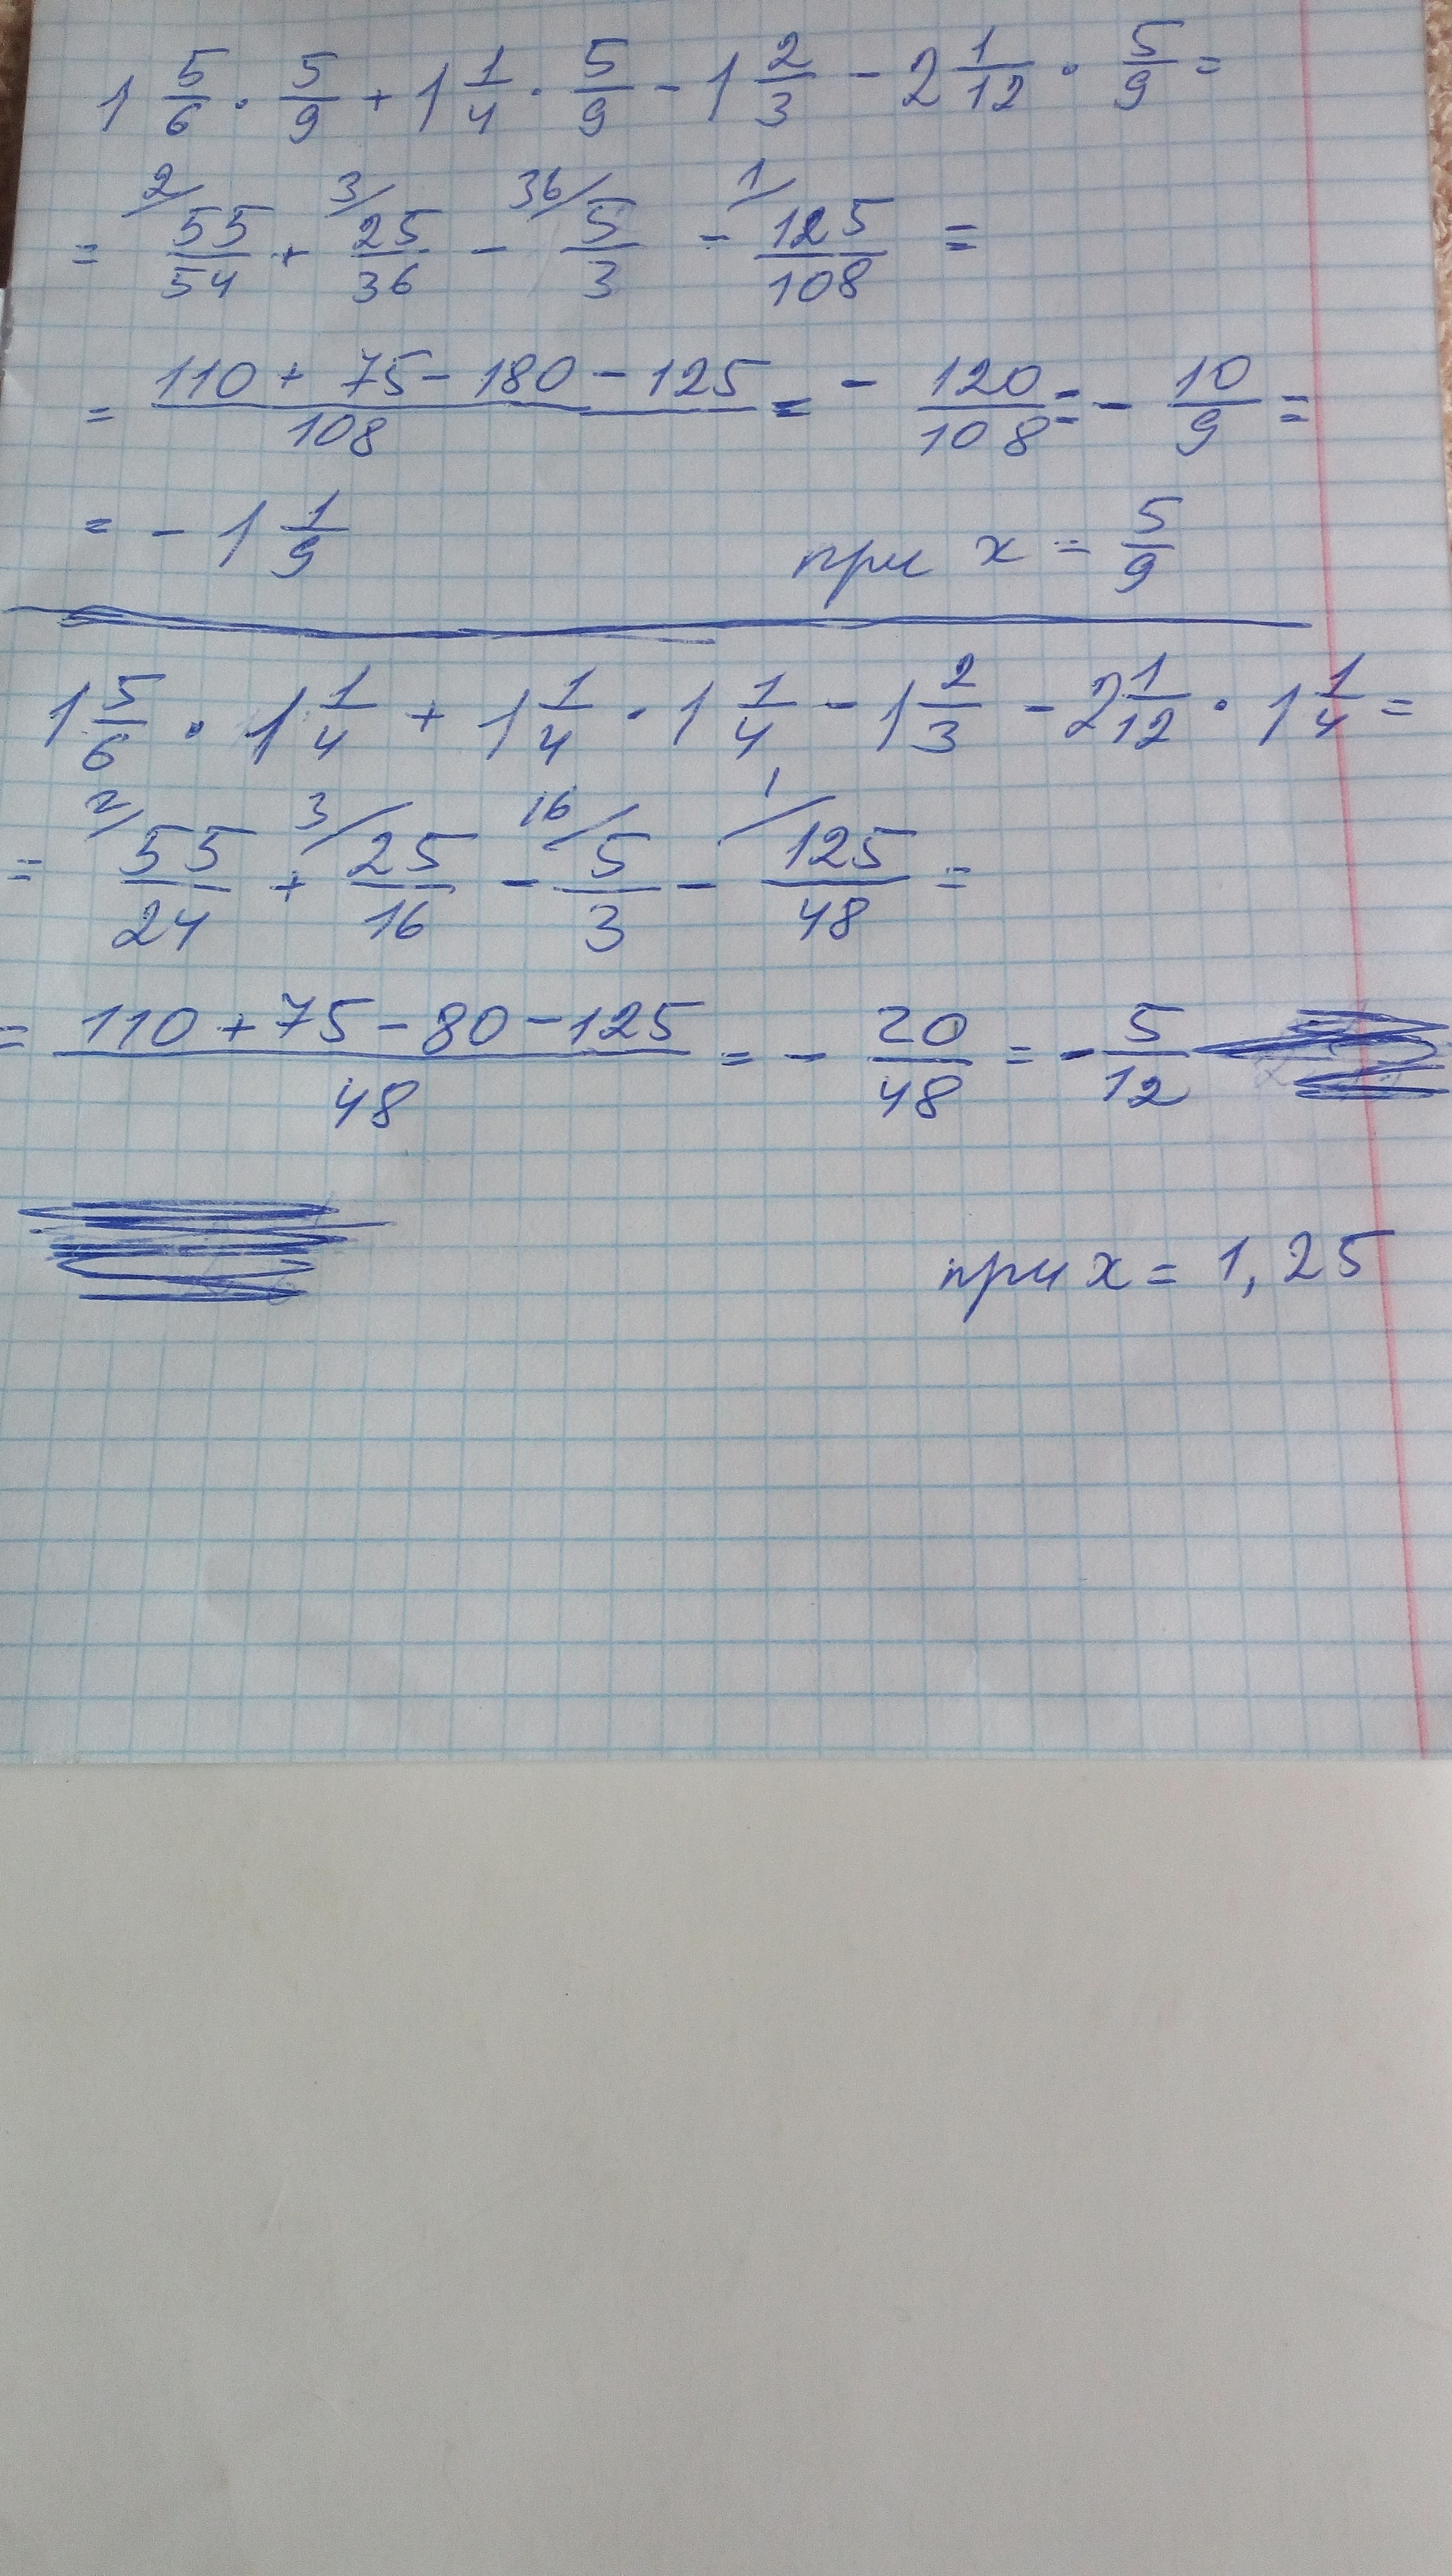 1 5/6 · 5/9 + 1 1/4 · 5/9 - 1 2/3 - 2 1/12 · 5/9 =
= 2/ 55/54 + 3/ 25/36 - 36/ 5/3 - 1/ 125/108 =
= 110 + 75 - 180 - 125 / 108 = - 120/108 = - 10/9 =
= - 1 1/9 при x = 5/9
1 5/6 · 1 1/4 + 1 1/4 · 1 1/4 - 1 2/3 - 2 1/12 · 1 1/4 =
= 2/ 55/24 + 3/ 25/16 - 16/ 5/3 - 1/ 125/48 =
= 110 + 75 - 80 - 125 / 48 = - 20/48 = - 5/12
при x = 1,25